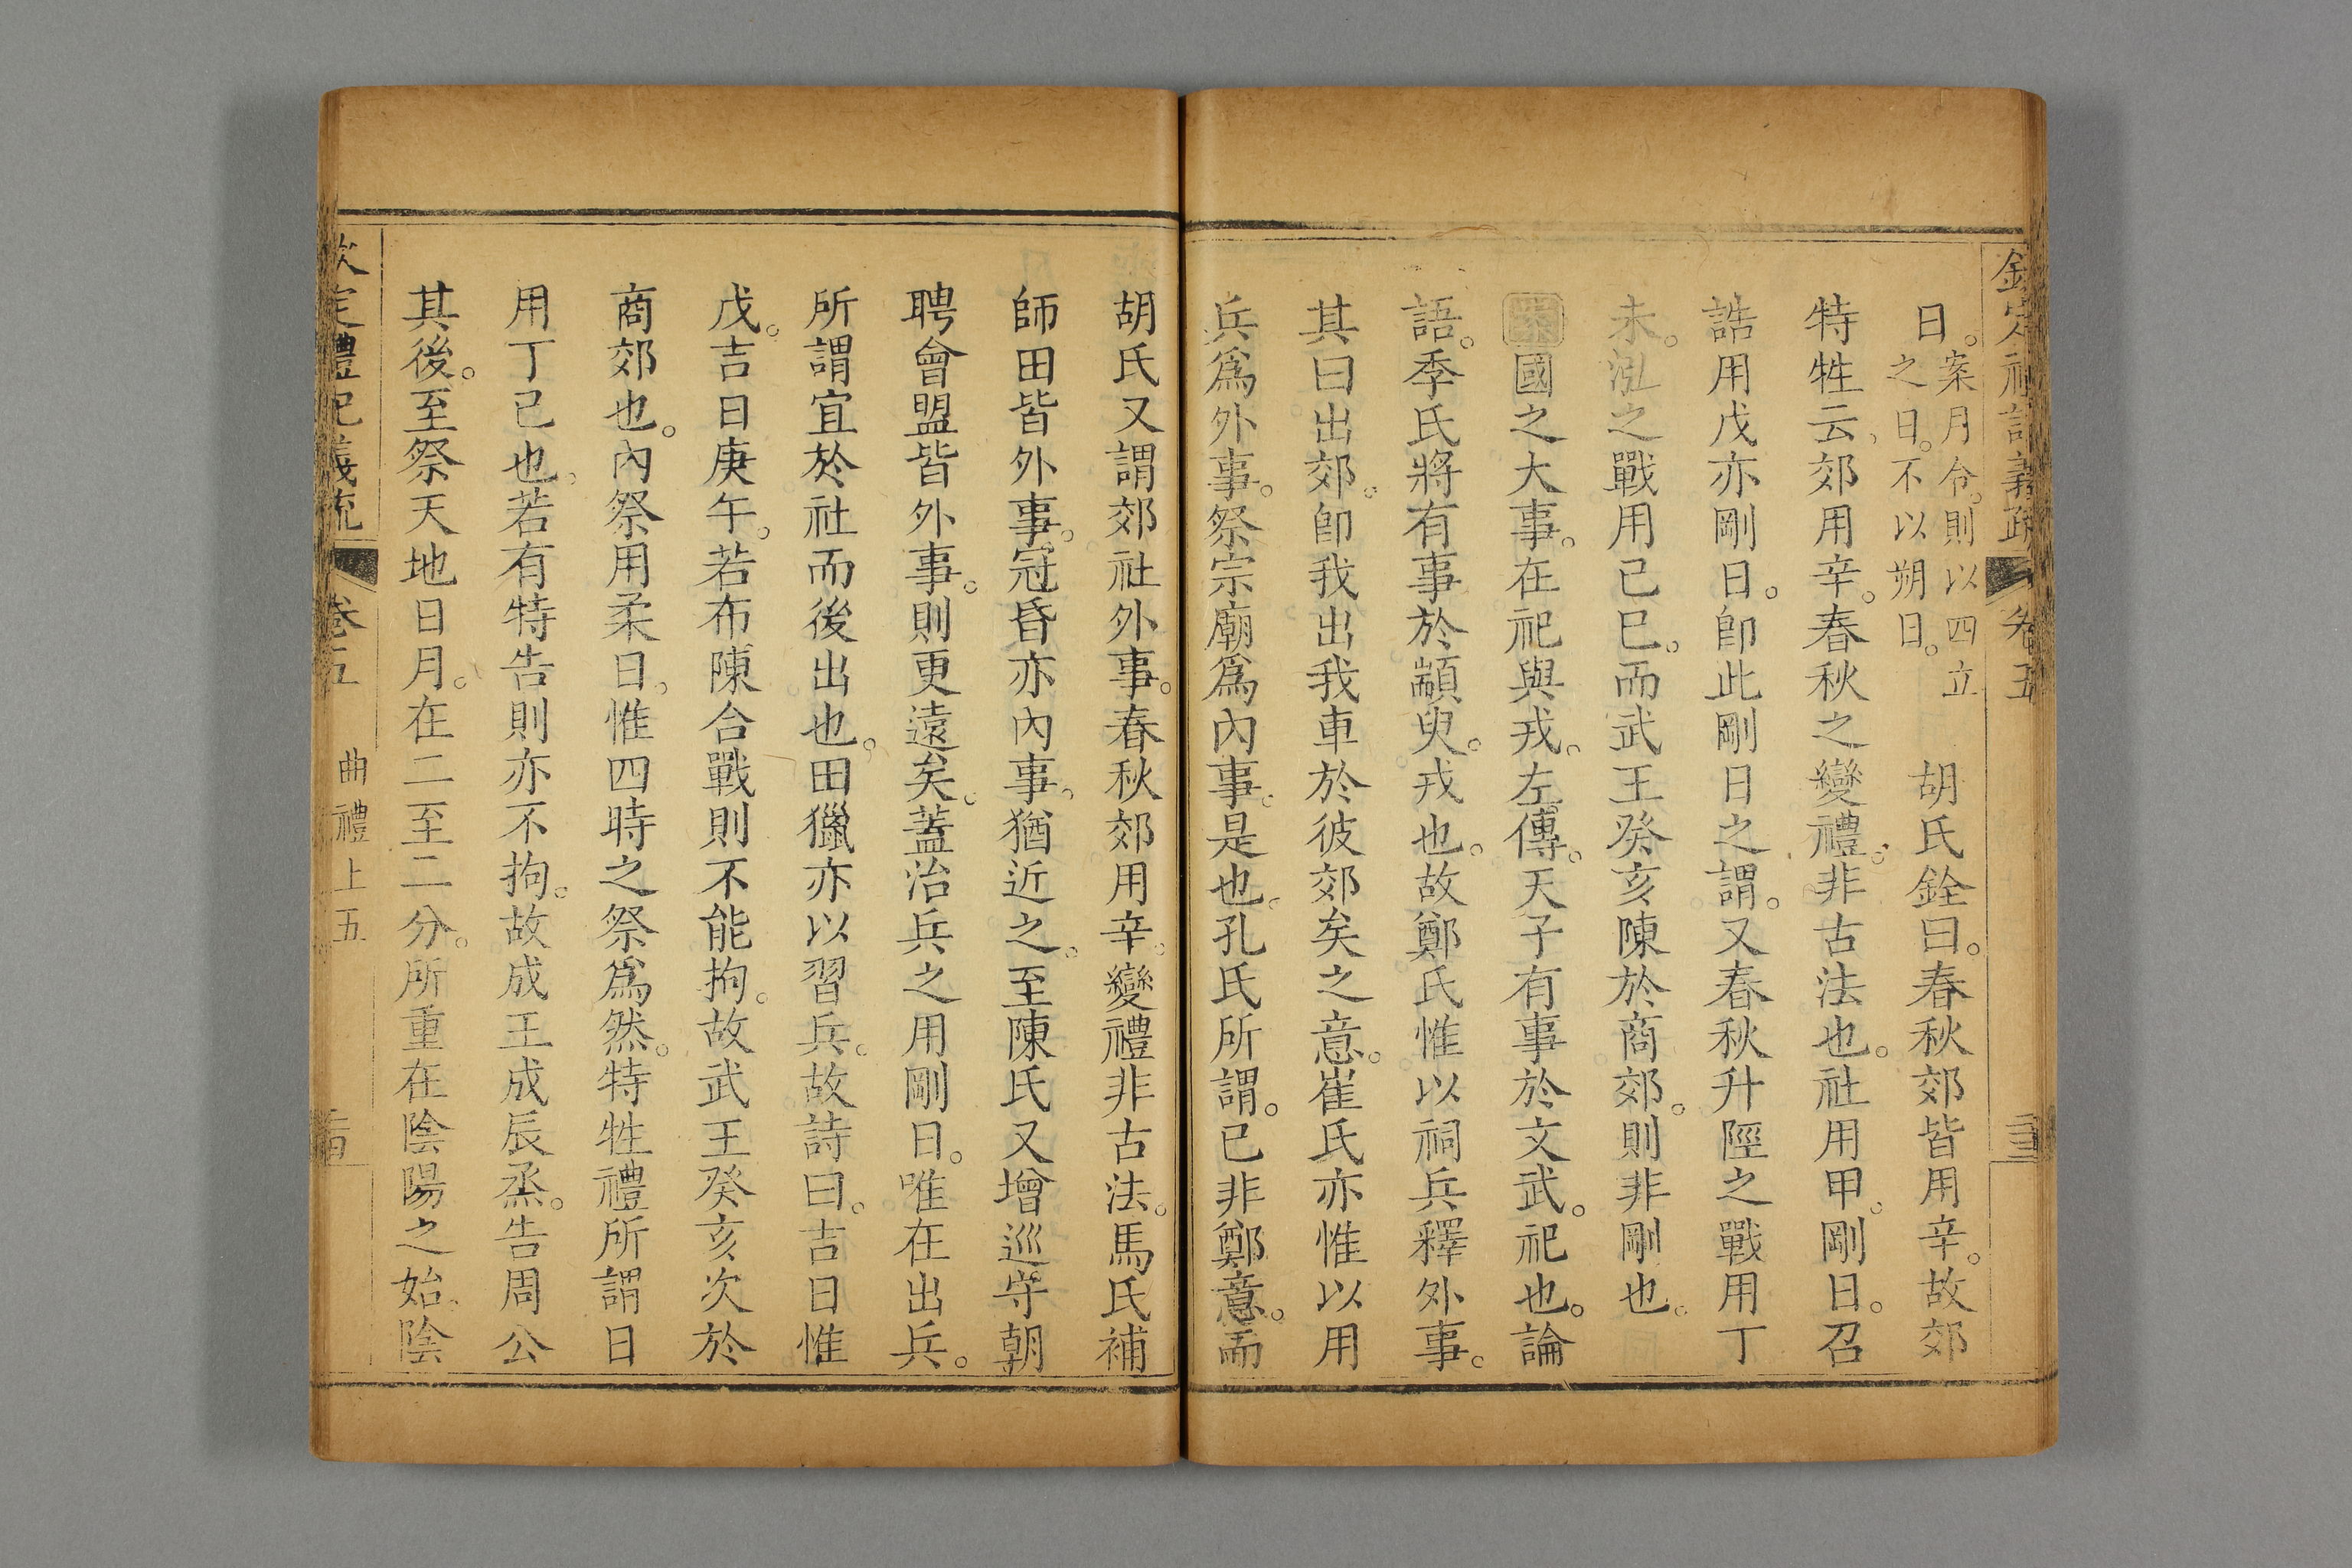 欽定禮記義疏 卷五
日。案月令。則以四立之日。不以朔日。 胡氏銓曰。春秋郊皆用辛。故郊
特牲云、郊用辛。春秋之變禮。非古法也。社用甲。剛日。召
誥用戊亦剛日。卽此剛日之謂。又春秋升陘之戰用丁
未。泓之戰用己巳。而武王癸亥陳於商郊。則非剛也。
案國之大事。在祀與戎。左傳。天子有事於文武。祀也。論
語。季氏將有事於顓臾。戎也。故鄭氏惟以祠兵釋外事。
其曰出郊。卽我出我車於彼郊矣之意。崔氏亦惟以用
兵爲外事。祭宗廟爲內事。是也。孔氏所謂。已非鄭意。而
胡氏又謂郊社外事。春秋郊用辛。變禮非古法。馬氏補
師田皆外事。冠昏亦內事。猶近之。至陳氏又增巡守朝
聘會盟皆外事。則更遠矣。蓋治兵之用剛日。唯在出兵。
所謂宜於社而後出也。田獵亦以習兵。故詩曰。吉日惟
戊。吉日庚午。若布陳合戰則不能拘。故武王癸亥次於
商郊也。內祭用柔日。惟四時之祭爲然。特牲禮所謂日
用丁己也、若有特告則亦不拘。故成王戊辰烝。告周公
其後。至祭天地日月。在二至二分。所重在陰陽之始。陰
欽定禮記義疏 卷五 曲禮上五